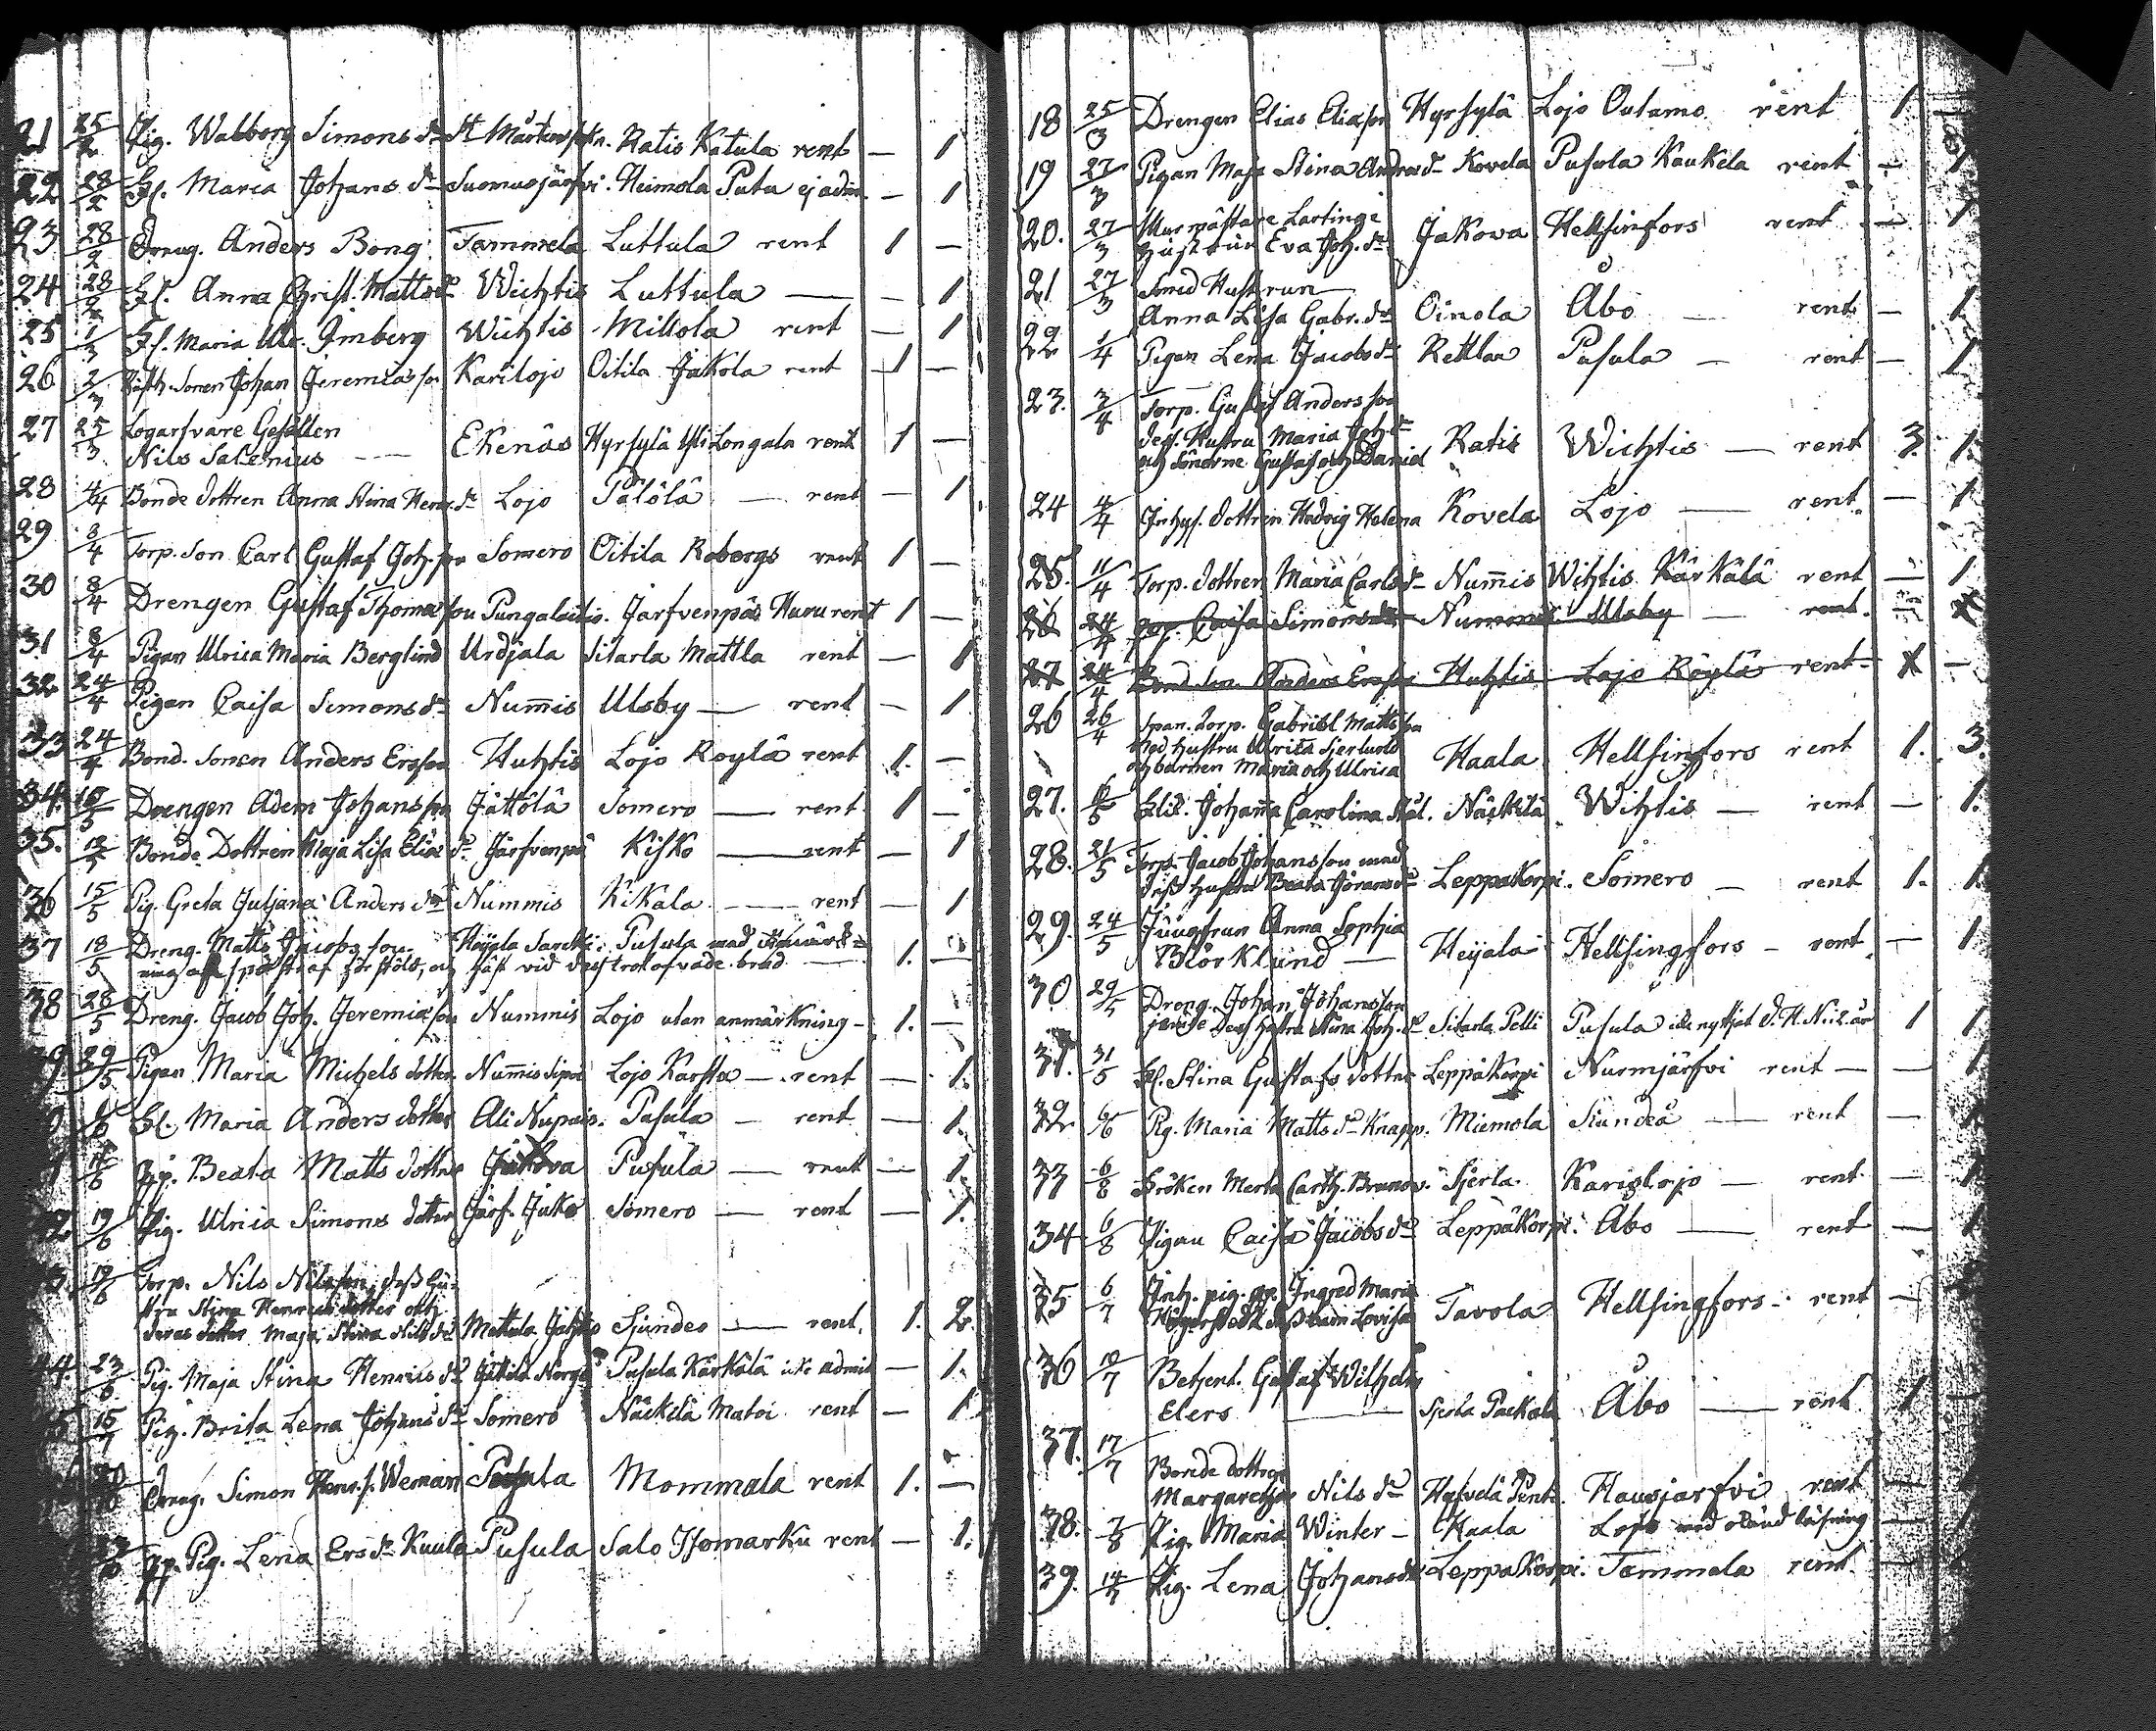 21 25/2 Pig. Walborg Simons dr St Mårtens sokn. Ratis Katula rent — 1
22 28/2 Maria Johans dr Suomusjärfvi. Heimola Putu ej adm. — 1
23 28/2 Dreng. Anders Bong Tammela Luttula rent 1 —
24 28/2 Anna Christ. Matts dr Wichtis Luttula — — 1
25 1/3 Maria Ulr. Imberg Wichtis Millola rent — 1
26 2/3 Sonen Johan Jeremias son Karilojo Oitila Jakola rent 1 —
27 25/3 Logarfvare Gesällen
Nils Salenius — Ekenäs Hyrsylä Yli Longala rent 1 —
28 4/4 Bonde dottren Anna Stina Henr. dr Lojo Pälölä — rent — 1
29 8/4 Torp. Son Carl Gustaf Joh. son Somero Oitila Robergs rent 1 —
30 8/4 Drengen Gustaf Thomasson Pungalaitis. Jarfvenpää Huru rent 1 —
31 8/4 Pigan Ulrica Maria Berglind Urdjala Sitarla Mattla rent — 1
32 24/4 Pigan Caisa Simons dr Num̅is Ulsby — rent — 1
33 24/4 Bond. Sonen Anders Ersson Huhtis Lojo Roylä rent 1. —
34. Drengen Adem Johansson Jättölä Somero — rent 1 —
35. Bonde Dottren Maja Lisa Elias dr Järfvenpä Kisko — rent — 1
36 15/5 Pig. Greta Juljana Anders dr Nummis Kikala — rent — 1
37 18/5 Dreng. Matts Jacobs son Höyola Pusula med
1. —
38 28/5 Dreng. Jacob Joh. Jeremiasson Nummis Lojo utan anmärkning — 1. —
29/5 Pigan Maria Michels dotter Num̅is Lojo Karsta — rent — 1.
Maria Anders dotter Ali Nupais. Pusula — rent — 1.
Beata Matts dotter Jakova Pusula — rent — 1.
19/6 Pig. Ulrica Simons dotter Järf. Juko Somero — rent — 1.
19/6 Torp. Nils Nilsson, dess hu-
stru Stina Henrics dotter och
deras dotter Maja Stina Nils dr Mattula Sjundeo — rent. 1. 2.
23/6 Pig. Maja Stina Henrics dr Pusula Kärkälä icke admit — 1.
Pig. Brita Lena Johans dr Somero Näckilä Matoi rent — 1
Dreng. Simon Henr. s. Weman Pusula Mommala rent 1. —
Pig. Lena Ers dr Kuula Pusula Salo Isomarku rent — 1.
18 25/3 Drengen Elias Eliasson Hyrsylä Lojo Outamo rent 1
19 27/3 Pigan Maja Stina Andrs dr Kovela Pusula Kaukela rent — 1
20. 27/3 Murmästare Lartinge
Hustrun Eva Joh. dr Jakova Hellsinfors rent — 1
21 27/3 Smed Hustrun
Anna Lisa Gabr. dr Oinola Åbo — rent — 1
22 1/4 Pigan Lena Jacobs dr Rettlaa Pusula — rent — 1
23. 3/4 Torp. Gustaf Andersson
dess. Hustru Maria Joh. dr
och Sönerne Gustaf och David Ratis Wichtis — rent 3. 1.
24 4/4 Inhys. dottren Hedvig Helena Kovela Lojo — rent — 1
25. 11/4 Torp. dottren Maria Carls dr Num̅is Wihtis Kärkälä rent — 1
26 24/4 Caisa Simons dr Nummis Ulsby — rent.
27 24/4 Bond. Son. Anders Ersson Huhtis Lojo Röylä rent —
26 26/4 Torp. Gabriel Mattsson
med hustru Ulrica
och barnen Maria och Ulrica Haala Hellsingfors rent 1. 3.
27. Johan̅a Carolina Näckilä Wihtis — rent — 1.
28. 21/5 Torp. Jacob Johansson med
dess hustru Beata Görans dr Leppäkorpi. Somero — rent 1. 1.
29. 24/5 Jungfrun Anna Sophia
Björklund — Heyala Hellsingfors — rent — 1
30 29/5 Dreng. Johan Johansson
jemte dess hustru Stina Joh. dr Sitarla Pelli Pusula icke nyttjat d. H. N. i 2. år 1 1
31. 31/5 Stina Gustafs dotter Leppäkorpi Nurmjärfvi rent — — 1
32 6/6 Pig. Maria Matts dr Knapp. Miemola Siundeå — rent — 1
33 6/8 Fröken Merta Cath. Brunov. Sjerla. Karislojo — rent — 1
34 6/8 Pigan Caisa Jacobs dr Leppäkorpi. Åbo — rent — 1
35 6/7 Inh. pig. Ingred Maria
barn Lovisa Tavola Hellsingfors — rent —
36 10/7 Betjent. Gustaf Wilhelm
Elers — Sjerla Packala Åbo — rent 1 —
37. 17/7 Bonde dottren
Margaretha Nils dr Hyfvelä Pent. Hausjärfvi rent — 1
38. 7/8 Pig. Maria Winter — Haala Lojo med läsning — 1
39. Pig. Lena Johans dr Leppakorpi. Tammela rent. — 1